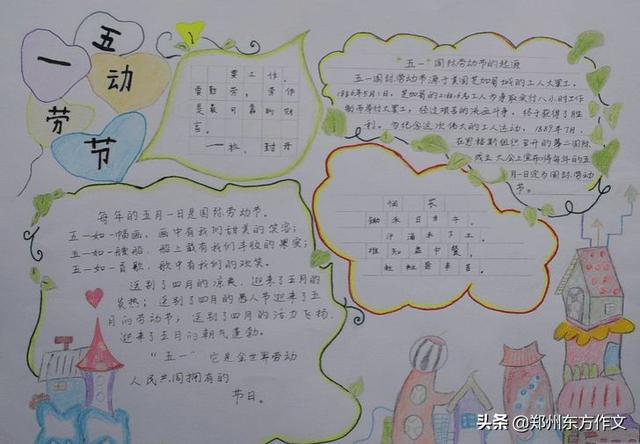 五一
劳动节
要工作，
要勤劳，劳作
是最可靠的财
富。
“五一”国际劳动节的起源
五一国际劳动节源于美国芝加哥城的工人大罢工。
1886年5月1日，芝加哥的
制而举行大罢工，经过艰苦的流血斗争，终于获得了胜
利。为纪念这次伟大的工人运动，1889年7月，
在恩格斯组织召开的第二国际
成立大会上宣布将每年的五
月一日定为国际劳动
节。
悯农
锄禾日当午，
汗滴禾下土。
谁知盘中餐，
粒粒皆辛苦。
每年的五月一日是国际劳动节。
五一如一幅画，画中有我们甜美的笑容；
五一如一艘船，船上载有我们丰收的果实；
五一如一首歌，歌中有我们的欢笑。
送别了四月的凉爽，迎来了五月的
炎热；送别了四月的愚人节迎来了五
月的劳动节；送别了四月的活力飞扬，
迎来了五月的朝气蓬勃。
“五一”它是全世界劳动
人民共同拥有的
节日。
头条 @郑州东方作文